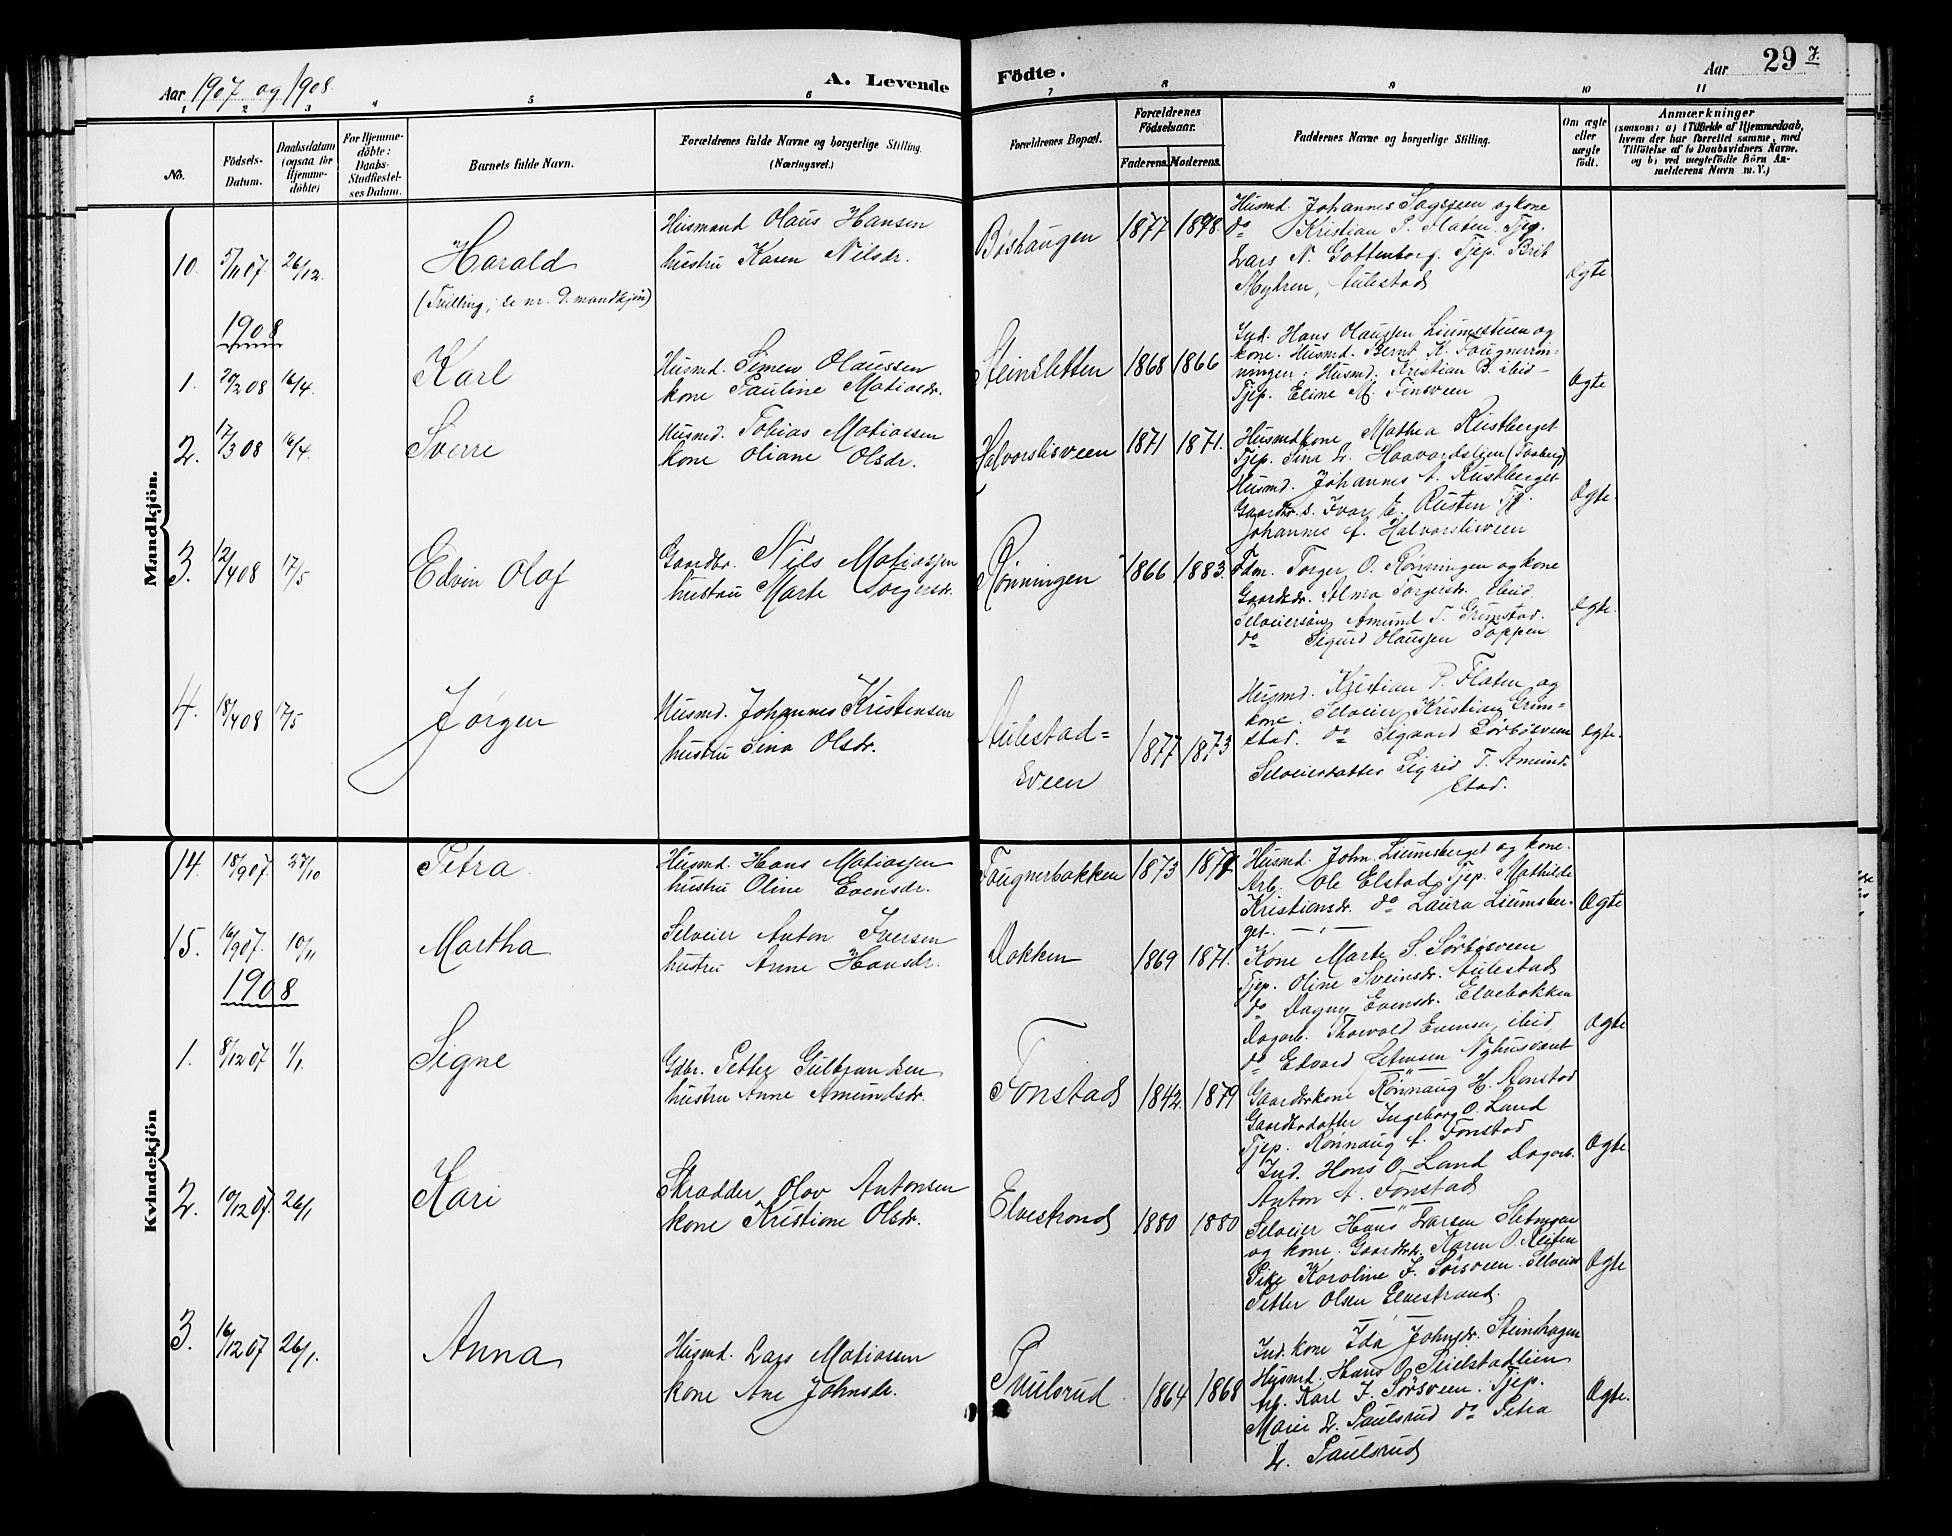 Aar 1907 og 1908. A. Levende Födte. Aar 29
1 2 3 4 5 6 7 8 9 10 11
No. Födsels-Datum. Daabsdatum (ogsaa for Hjemmedöbte) For Hjemmedöbte: Daabs-Stadfæstelses Datum. Barnets fulde Navn. Forældrenes fulde Navne og borgerlige Stilling. (Næringsvei.) Forældrenes Bopæl. Forældrenes Födselsaar. Faderens. Moderens. Faddernes Navne og borgerlige Stilling. Om ægte eller uægte födt. Anmærkninger (saasom: a) i Tilfælde af Hjemmedaab, hvem der har forrettet samme, med Tilföielse af to Daabsvidners Navne, og b) ved uægtefödte Börn Anmelderens Navn m. V.)
Mandkjön.
10. 5/11 07 26/12. Harald
(Tvilling, se nr. 9. mandkjøn)
Husmand Olaus Hansen
hustru Karen Nilsdr.
Bøshaugen 1877 1898.
Husmd. Johannes Sagsveen og kone
do Kristian P. Flaten. Tjeg.
Lars N. Gottenborg. Tjep. Brit
Myhren, Aulestad
Ægte
1908
1. 20/2 08 16/4. Karl
Husmd. Simen Olaussen
kone Pauline Matiasdr.
Steinsletten 1868 1866
Ind. Hans Olaussen Liumsstuen og
kone. Husmd. Bernt K. Fougnerrön-
ningen: Husmd. Kristian B. ibid-
Tjep. Eline M. Finsveen
Ægte
2. 17/3 08 16/4. Sverre
Husmd. Tobias Matiassen
kone Oliane Olsdr.
Halvorslisveen 1871 1871.
Husmdkone Mathea Rustberget
Tjep. Sina L. Haavardslien (Faaberg)
Husmd. Johannes A. Rustberget
Gaardbr. s. Ivar E. Rusten Tj.
Johannes A. Halvorslisveen
Ægte.
3. 12/4 08 17/5 Edvin Olaf
Gaardbr. Nils Matiassen
hustru Marte Torgersdr.
Rønningen 1866 1883.
Fdm. Torger O. Rönningen og kone
Gaardbdr. Alma Torgersdr. ibid.
Selveiersøn Amund T. Grimstad.
do Sigurd Olaussen Toppen
Ægte.
4. 18/4 08 17/5 Jørgen
Husmd. Johannes Kristensen
hustru Sina Olsdr.
Aulestad=
sveen
1877 1873
Husmd. Kristian P. Flaten og
kone. Selveier Kristian Grim=
stad. do Sigvard Sørbøsveen
Selveierdatter Sigrid T. Amund-
stad.
Ægte.
Kvindekjön
14. 18/9 07. 27/10 Petra
Husmd. Hans Matiassen
hustru Oline Evensdr.
Fougnerbakken 1873
Husmd. John Liumsberget og kone.
Arb. Ole Elstad, Tjep. Mathilde
Kristiansdr. do Laura Liumsber-
get.
Ægte
15. 16/9 07. 10/11 Martha
Selveier Anton Iversen
hustru Anne Hansdr.
Dokken 1869 1871.
Kone Marte S. Sörbøsveen
Tjep. Oline Sveinsdr. Aulestad
do Dagny Evensdr. Elvebakken
Dagarb. Thorvald Evensen, ibid
do Edvard Estensen Nyhusvænt
Ægte
1908
1. 8/12 07 1/1. Signe
Gdbr. Petter Gulbrandsen
hustru Anne Amundsdr.
Fonstad 1842. 1879
Gaardbrkone Rønnaug H. Aonstad
Gaardbrdatter Ingeborg O. Land
Tjep. Rønnaug A. Fonstad
Ind. Hans O. Land Dagarb.
Anton A. Fonstad
Ægte
2. 10/12 07. 26/1 Kari
Skradder Olav Antonsen
kone Kristiane Olsdr.
Elvestrand 1880 1880
Selveier Hans Larsen Sletmoen
og kone. Gaardbrdr. Karen O. Reiten
Pike Karoline J. Sørsveen. Selveier
Petter Olsen Elvestrand.
Ægte
3. 16/12 07 26/1. Anna
Husmd. Lars Matiassen
kone Ane Johnsdr.
Paulsrud 1864 1868
Ind. kone Ida Johnsdr. Steinshagen
Husmd. Hans O. Skielstadlien
Arb. Karl J. Sørsveen. Tjep.
Marie L. Paulsrud do Petra
L. Paulsrud
Ægte.